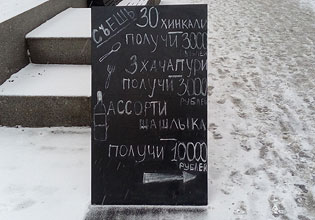 СЪЕШЬ 30 ХИНКАЛИ
ПОЛУЧИ 3000
РУБЛЕЙ
3 ХАЧАПУРИ
ПОЛУЧИ 3000
РУБЛЕЙ
АССОРТИ
ШАШЛЫКА
ПОЛУЧИ 10000
РУБЛЕЙ